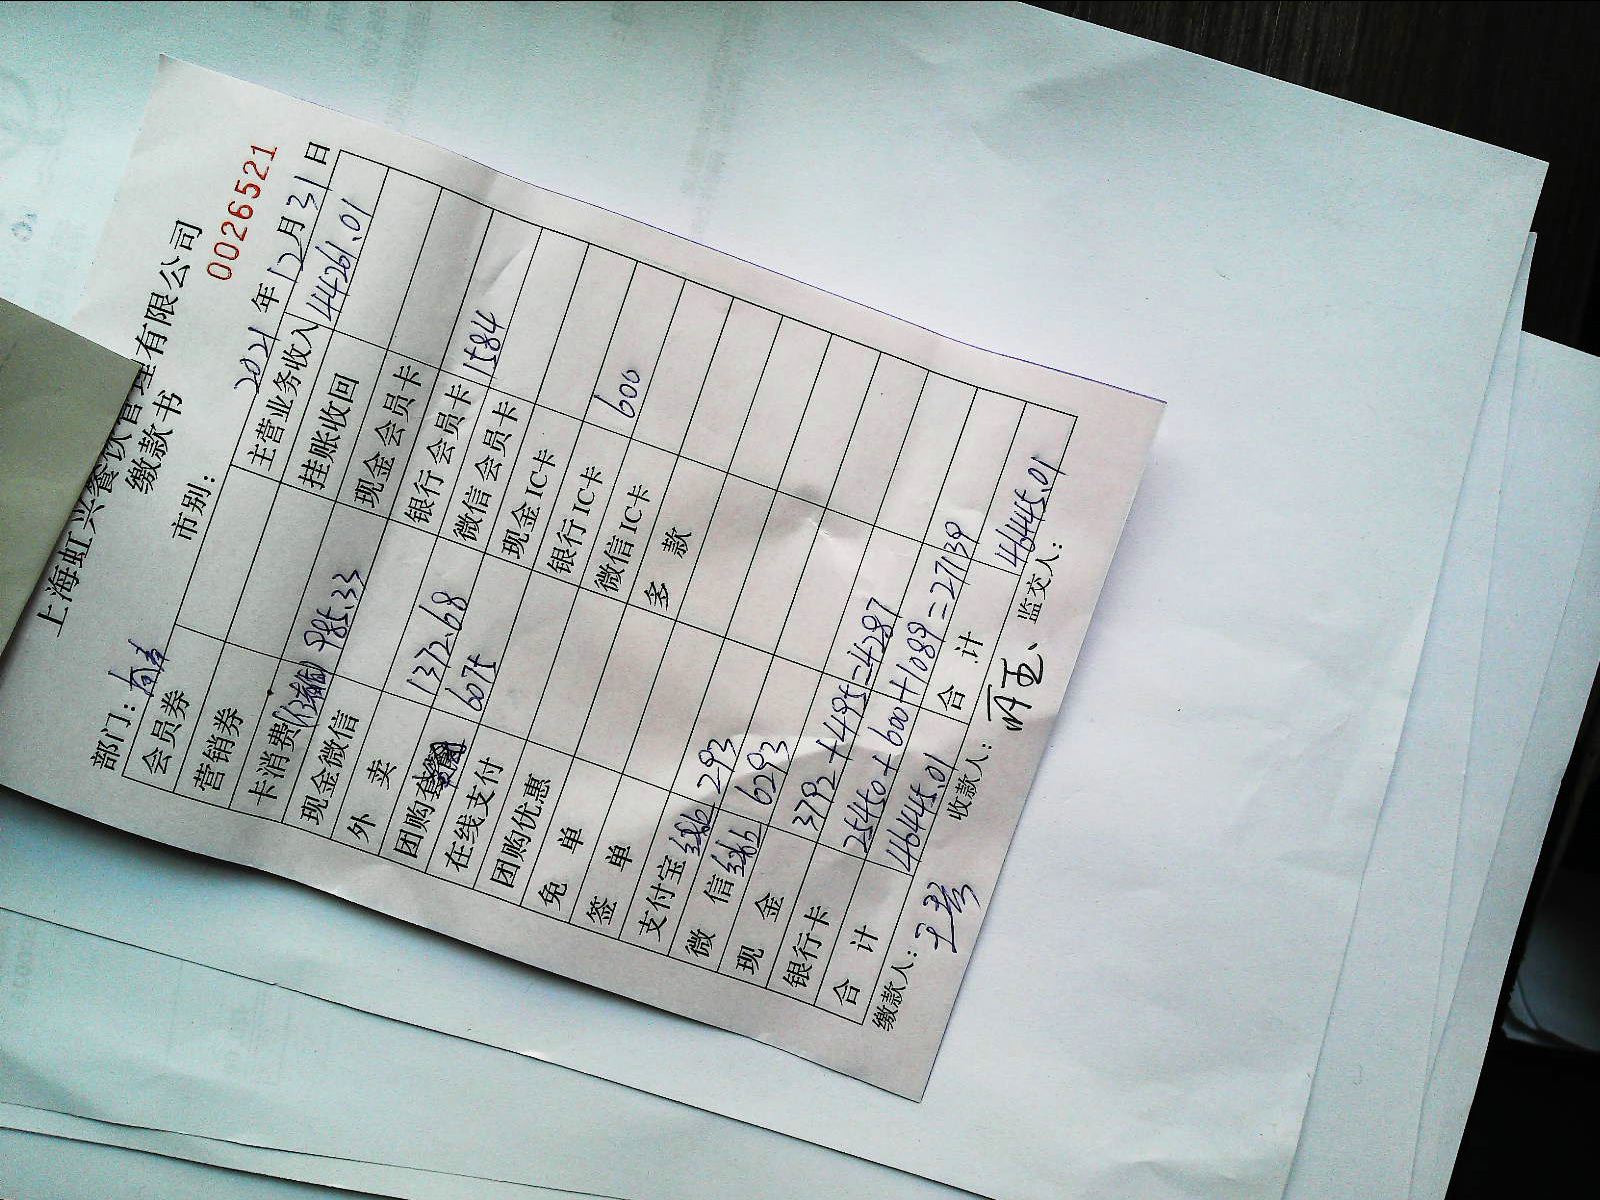 上海虹兴餐饮管理有限公司
缴款书
0026521
部门： 市别： 2021 年 12 月 31 日
会员券 主营业务收入 44261.01
营销券 挂账收回
卡消费 985.33 现金会员卡
现金微信 银行会员卡 1584
外卖 1372.68 微信会员卡
团购 6075 现金IC卡
在线支付 银行IC卡 600
团购优惠 微信IC卡
免单 多款
签单
支付宝 293
微信 6293
现金 3792+495=4287
银行卡 25450+600+1089=27139
合计 46445.01 合计 46445.01
缴款人： 收款人： 监交人：